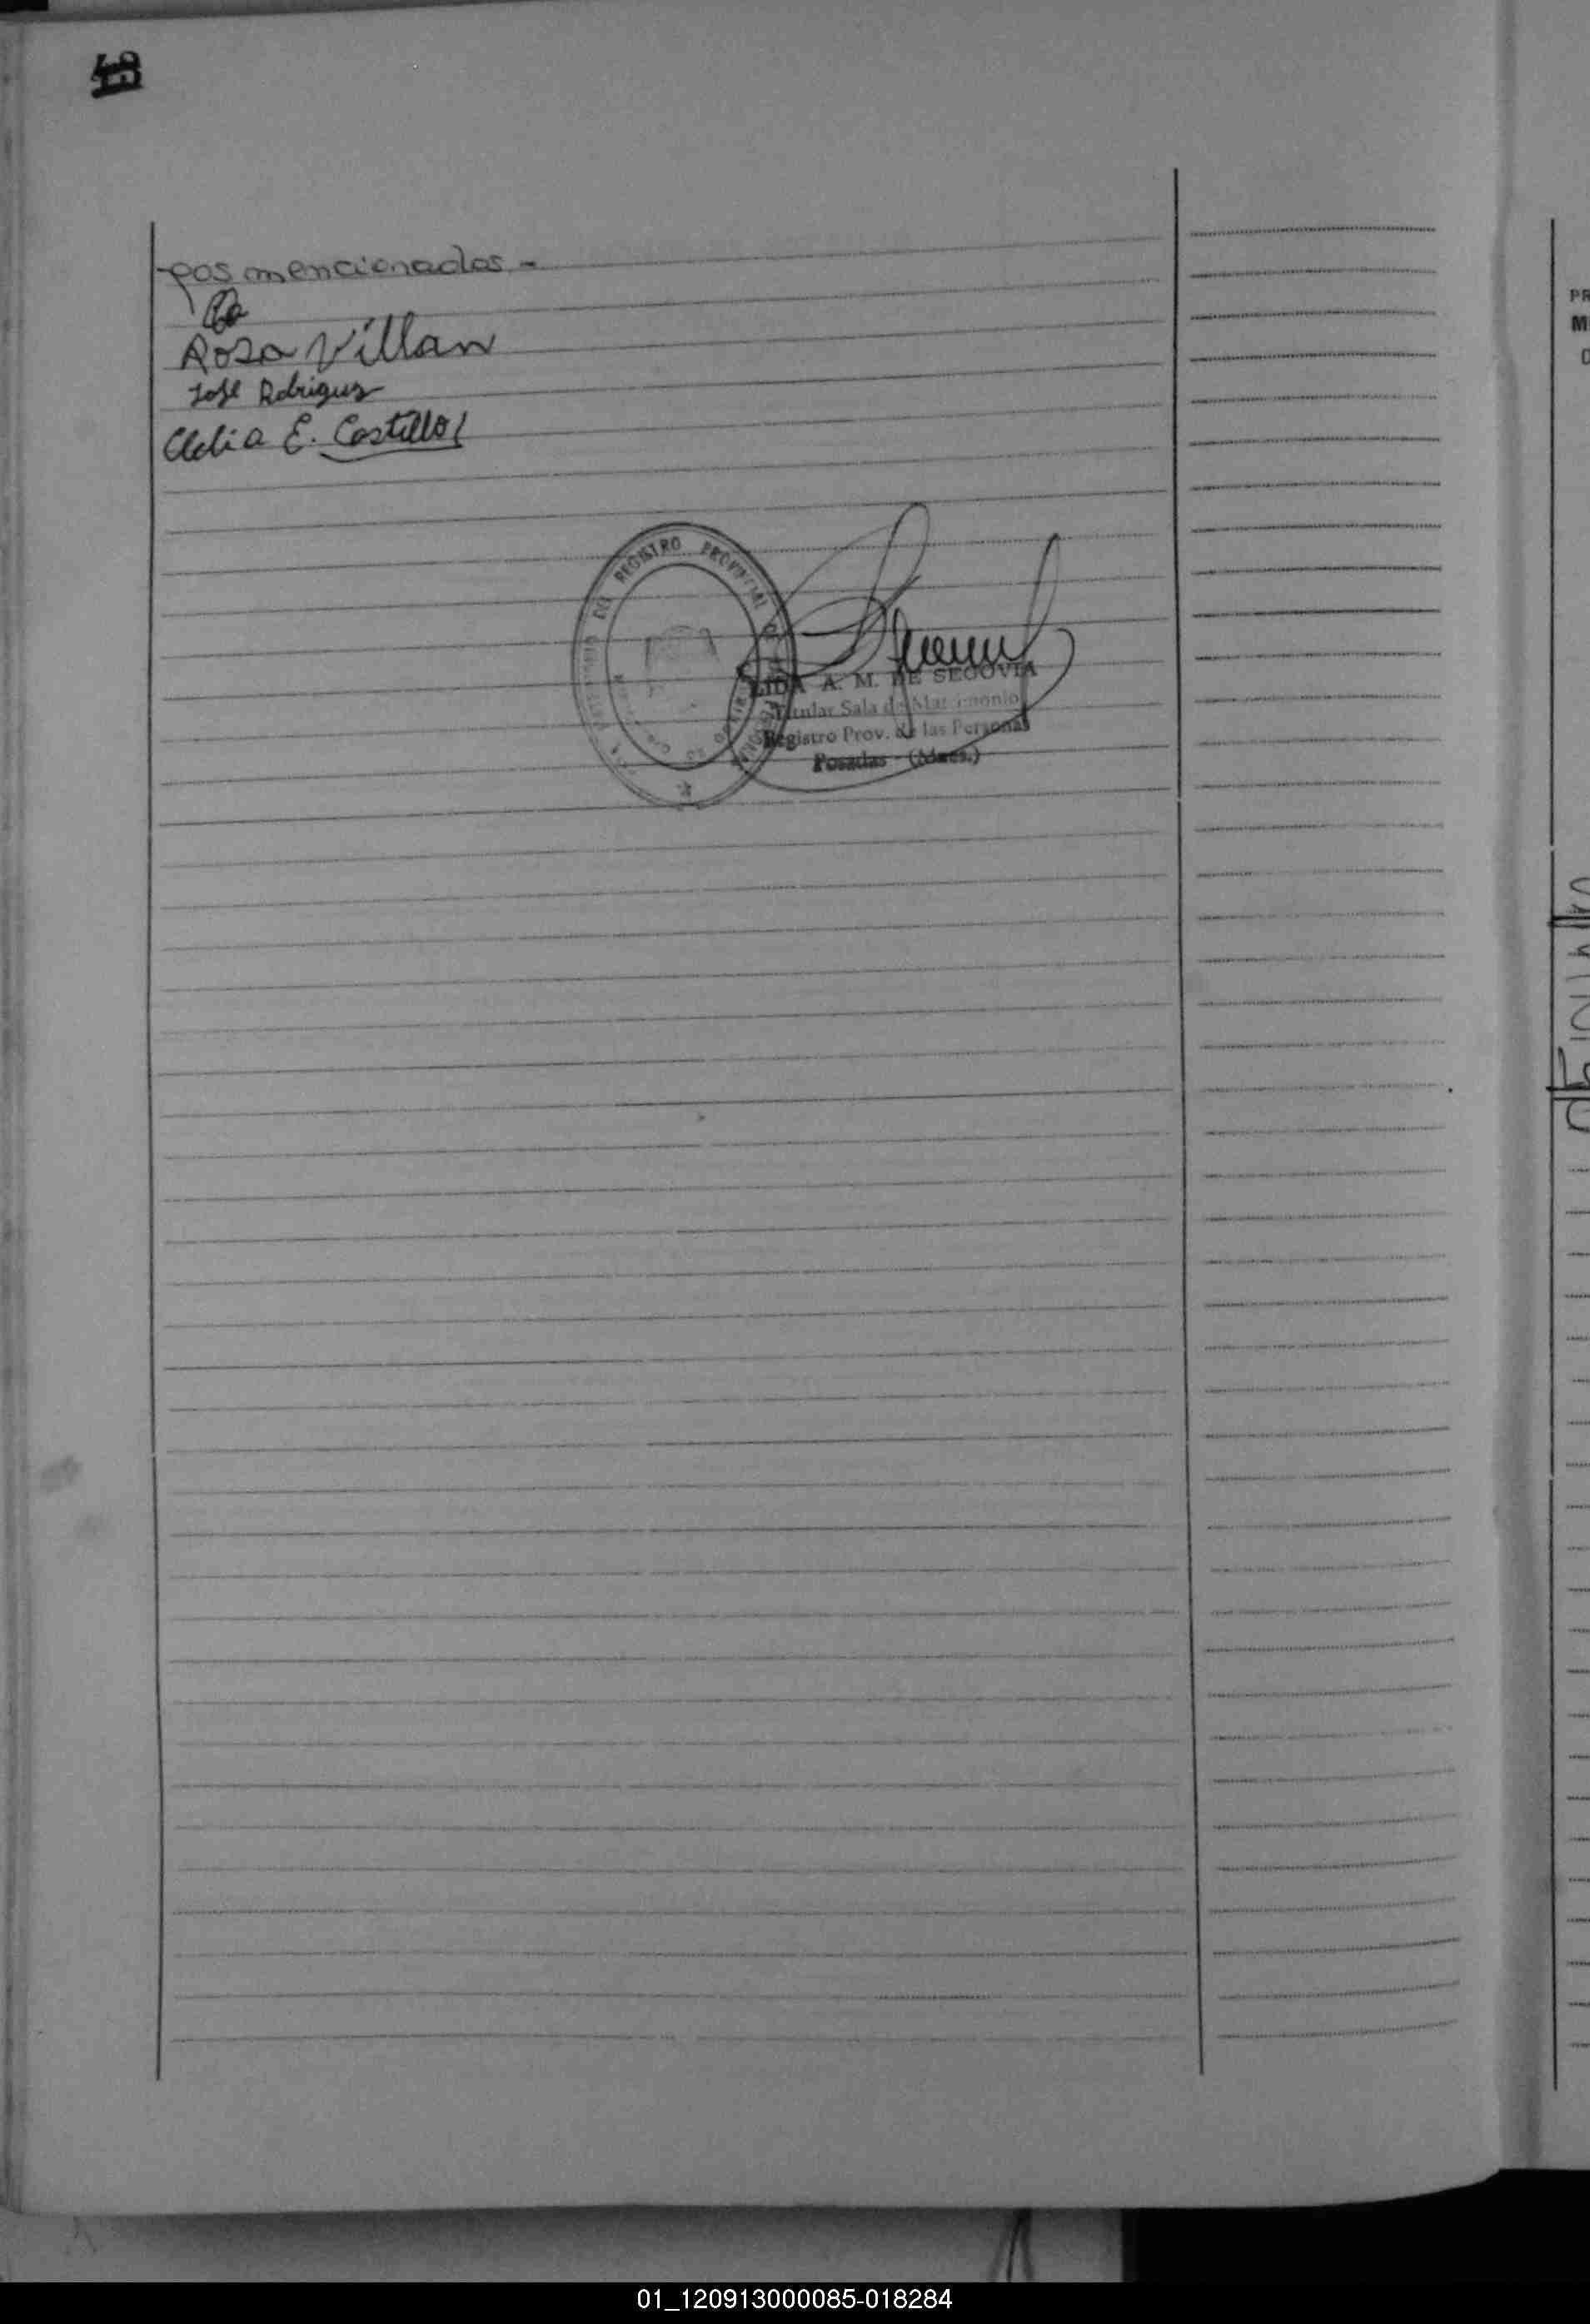 gos mencionados -
Rosa Villan
José Rodriguez
Clelia E. Castillo
DEL REGISTRO PROVINCIAL DE LAS PERSONAS
LIDA A. M. DE SEGOVIA
Titular Sala de Matrimonio
Registro Prov. de las Personas
Posadas - (Mnes.)
PR
M
01_120913000085-018284